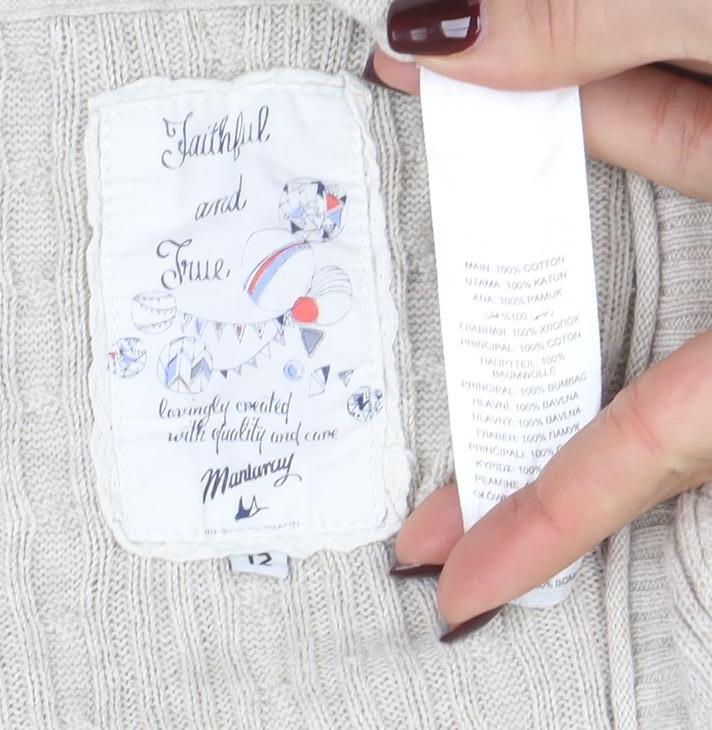 Faithful
and
True
lovingly created
with quality and care
Mantaray
12
MAIN: 100% COTTON
UTAMA: 100% KATUN
ANA: 100% PAMUK
رئيسي: 100% قطن
ГЛАВНАЯ: 100% ХЛОПОК
PRINCIPAL: 100% COTON
HAUPTTEIL: 100%
BAUMWOLLE
PRINCIPAL: 100% BUMBAC
HLAVNÍ: 100% BAVLNA
HLAVNÝ: 100% BAVLNA
ГЛАВЕН: 100% ПАМУК
PRINCIPALI: 100%
ΚΥΡΙΟΣ: 100%
PEAMINE: